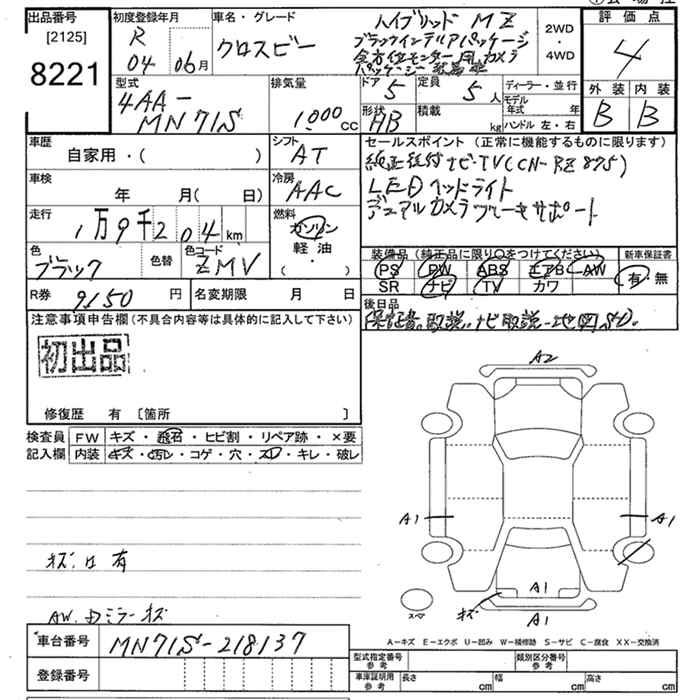 出品番号
[2125]
8221
初度登録年月
R
04 06月
車名・グレード
クロスビー
ハイブリッド MZ
ブラックインテリアパッケージ
全方位モニター用カメラ
パッケージ
2WD
・
4WD
評価点
4
外装 内装
B B
型式
4AA-
MN71S
排気量
1,000cc
ドア
5
定員
5人
形状
HB
積載
kg
ディーラー・並行
モデル年式 年
ハンドル 左・右
車歴
自家用・( )
シフト
AT
車検
年 月( 日)
冷房
AAC
走行
1万9千204km
燃料
ガソリン
軽油
( ・ )
色
ブラック
色替
色コード
ZMV
R券 9150円
名変期限 月 日
セールスポイント(正常に機能するものに限ります)
純正ナビTV(CN-RZ875)
LEDヘッドライト
デュアルカメラブレーキサポート
装備品(純正品に限り○をつけてください)
新車保証書
PS PW ABS エアB AW
SR ナビ TV カワ
有・無
後日品
保証書、取説、ナビ取説、地図SD.
注意事項申告欄(不具合内容等は具体的に記入して下さい)
初出品
修復歴 有 [箇所 ]
検査員記入欄
FW キズ・飛石・ヒビ割・リペア跡・×要
内装 キズ・汚レ・コゲ・穴・スレ・キレ・破レ
キズ凹有
AW.ドミラーキズ
A2
A1
A1
A1
キズ
A1
スペ
A－キズ E－エクボ U－凹み W－補修跡 S－サビ C－腐食 XX－交換済
車台番号 MN71S-218137
登録番号
型式指定番号 参考
類別区分番号 参考
車庫証明用 参考
長さ cm 幅 cm 高さ cm